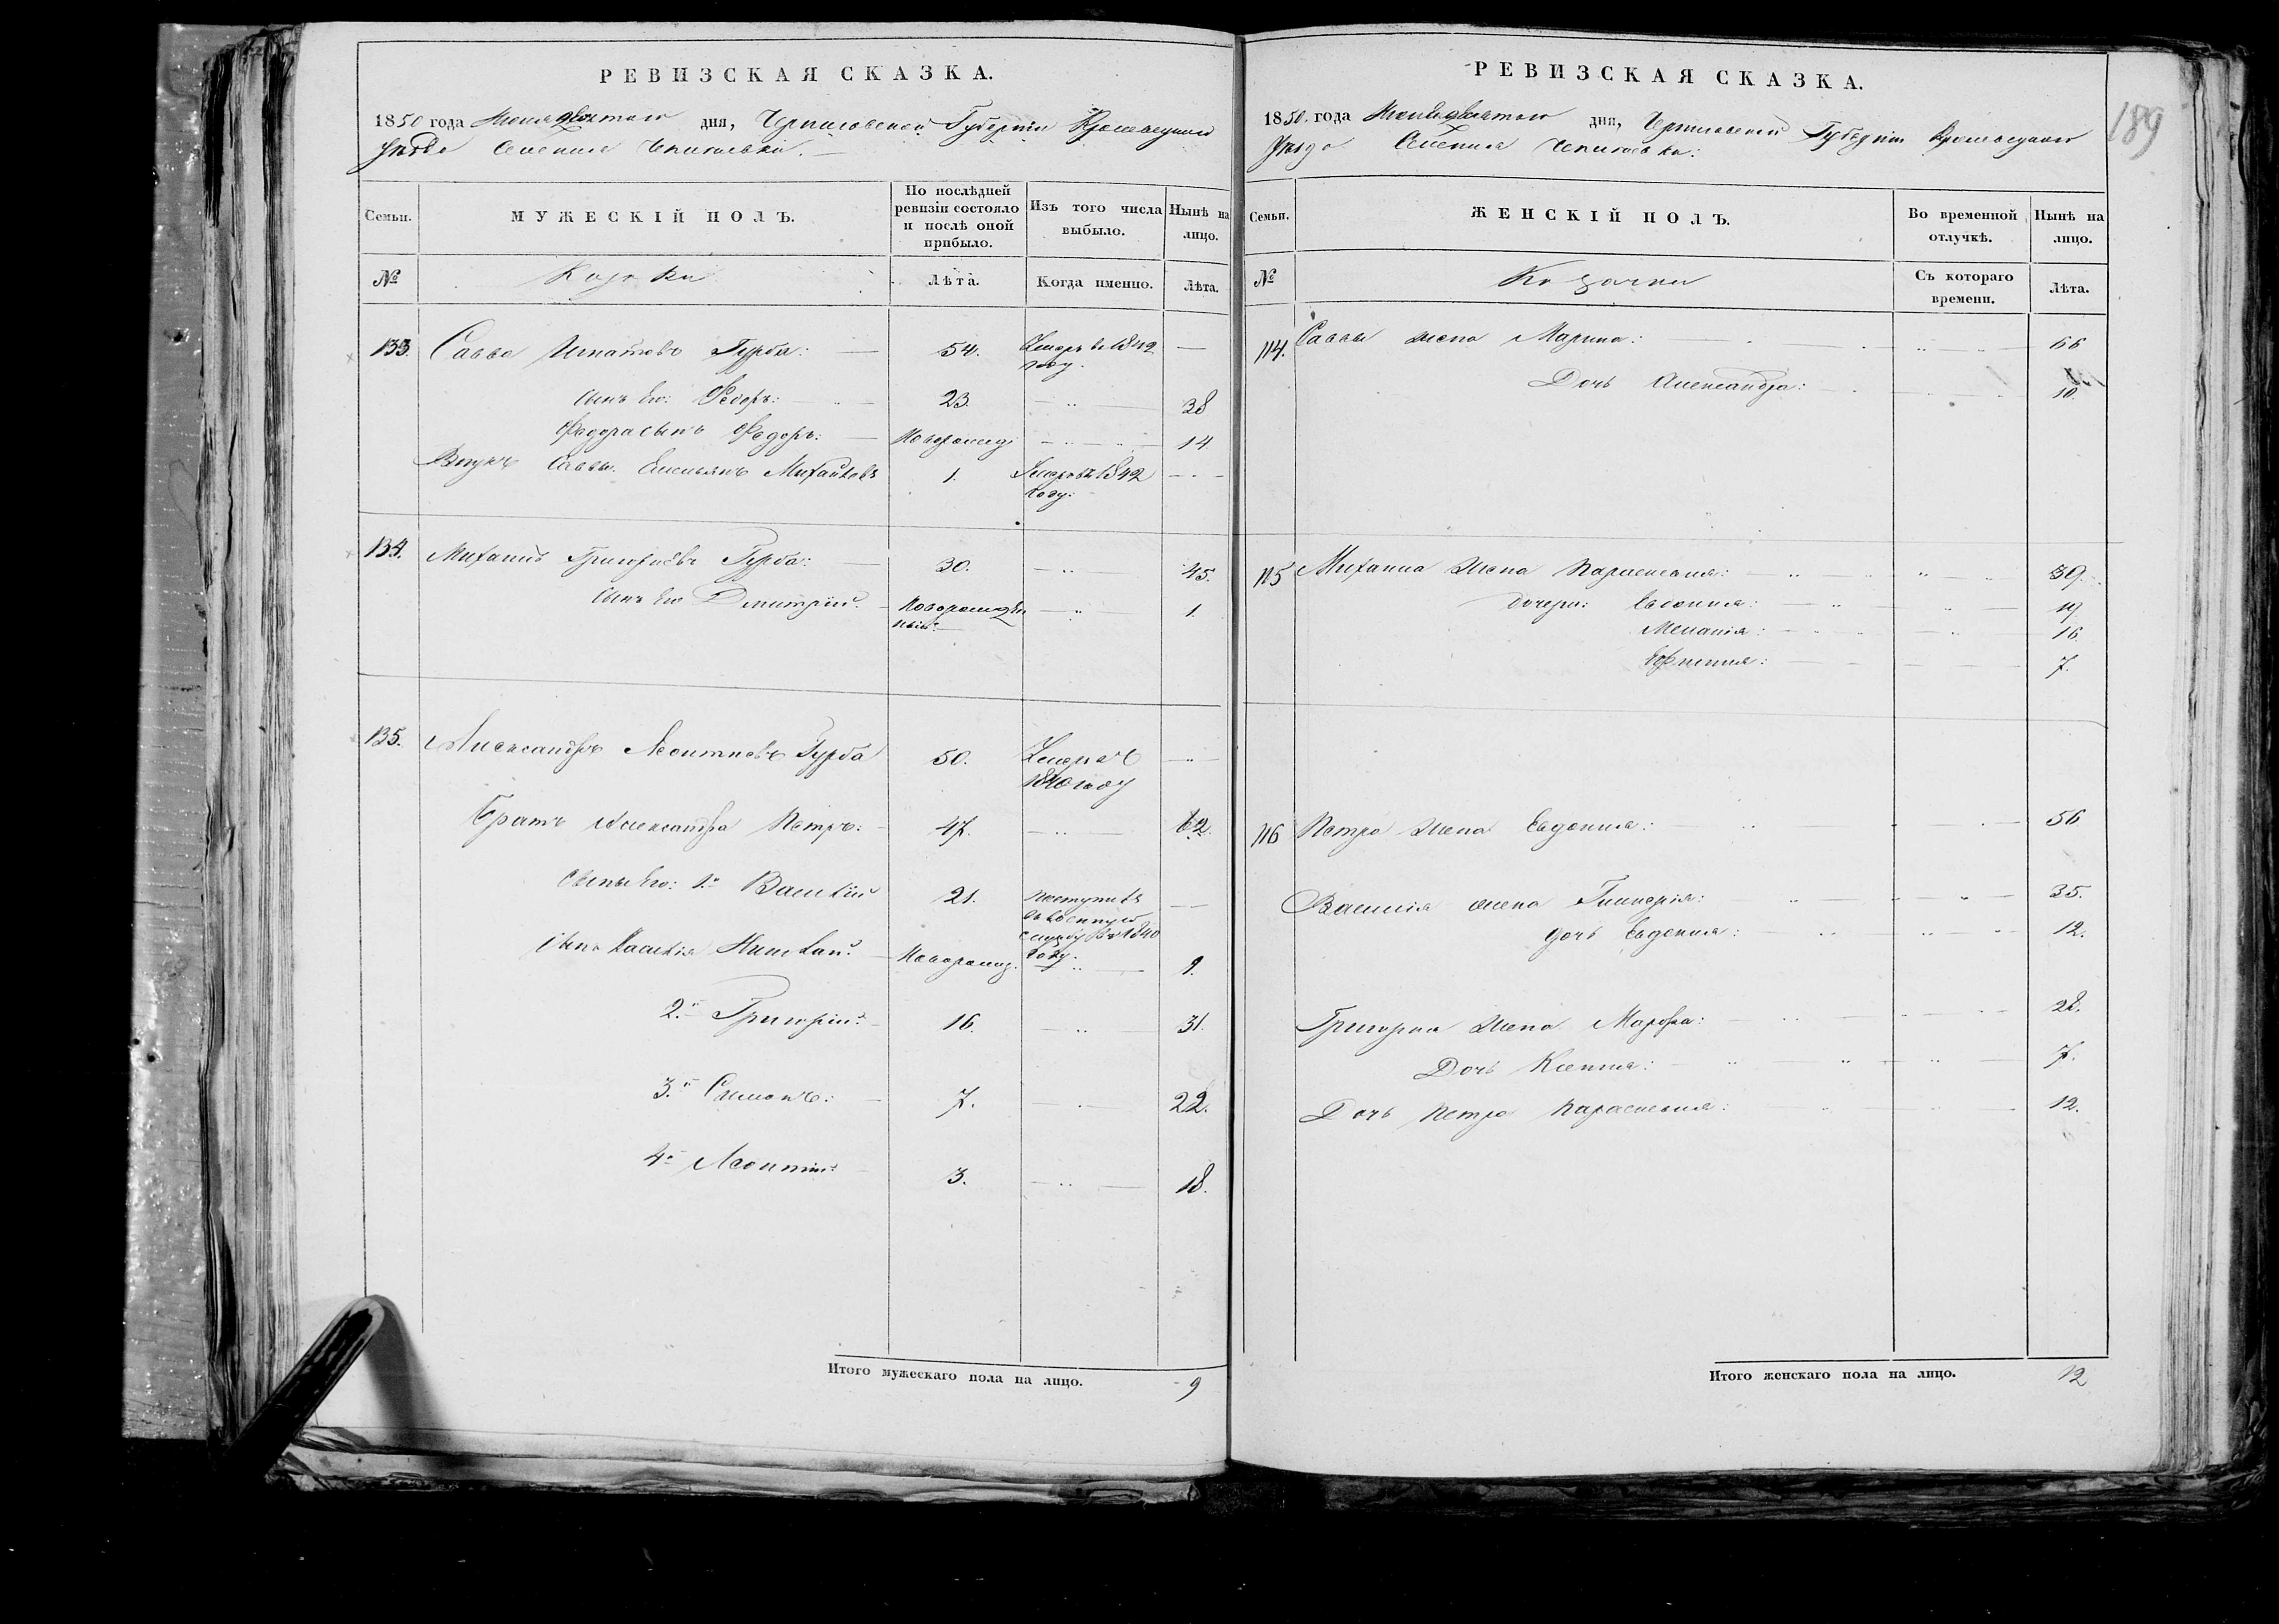 РЕВИЗСКАЯ СКАЗКА.
1850 года Июня девятого дня, Черниговской Губернiи Кролевецкого
Уезда Селенiя
Семьи.
МУЖЕСКIЙ ПОЛЪ.
По послѣдней ревизiи состояло и послѣ оной прибыло.
Изъ того числа выбыло.
Нынѣ на лицо.
№
Козаки
Лѣта.
Когда именно.
Лѣта.
133. Савва Игнатовъ Гурба: 54. Умеръ въ 1842 году. —
сынъ его: Федоръ: 23. 38
Федора сынъ Федоръ: Новорожд. 14
Внукъ Саввы Емельянъ Михайловъ 1. Умеръ въ 1842 году. —
134. Михаилъ Григорiевъ Гурба: 30. 45.
сынъ его Дмитрiй. Новорожден ный. 1.
135. Александръ Леонтiевъ Гурба 50. Умеръ в 1840 году —
Братъ Александра Петръ: 47. 62.
Сыны его: 1й Василiй 21. Поступилъ въ военную службу въ 1840 году. —
Сынъ Василiя Николай Новорожд. 9.
2й Григорiй 16. 31.
3й Симонъ: 7. 22.
4й Леонтiй 3. 18.
Итого мужескаго пола на лицо. 9
189
РЕВИЗСКАЯ СКАЗКА.
1850. года Июня девятого дня, Черниговской Губернiи Кролевецкого
Уезда Селенiя
Семьи.
ЖЕНСКIЙ ПОЛЪ.
Во временной отлучкѣ.
Нынѣ на лицо.
№
Козачки
Съ котораго времени.
Лѣта.
114. Саввы жена Марина: 66
Дочь Александра: 10.
115 Михаила жена Параскевия: 39.
дочери: Евдокия: 19
Меланiя: 16.
7.
116 Петра жена Евдокия: 56
Василiя жена Гликерiя: 35.
дочь Евдокия: 12.
Григорiя жена Марфа: 28.
Дочь Ксения: 7.
Дочь Петра Параскевия: 12.
Итого женскаго пола на лицо. 12